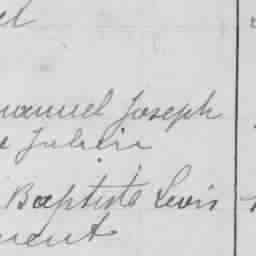 el
nanuel Joseph
e Julien
Baptiste Levis
ment